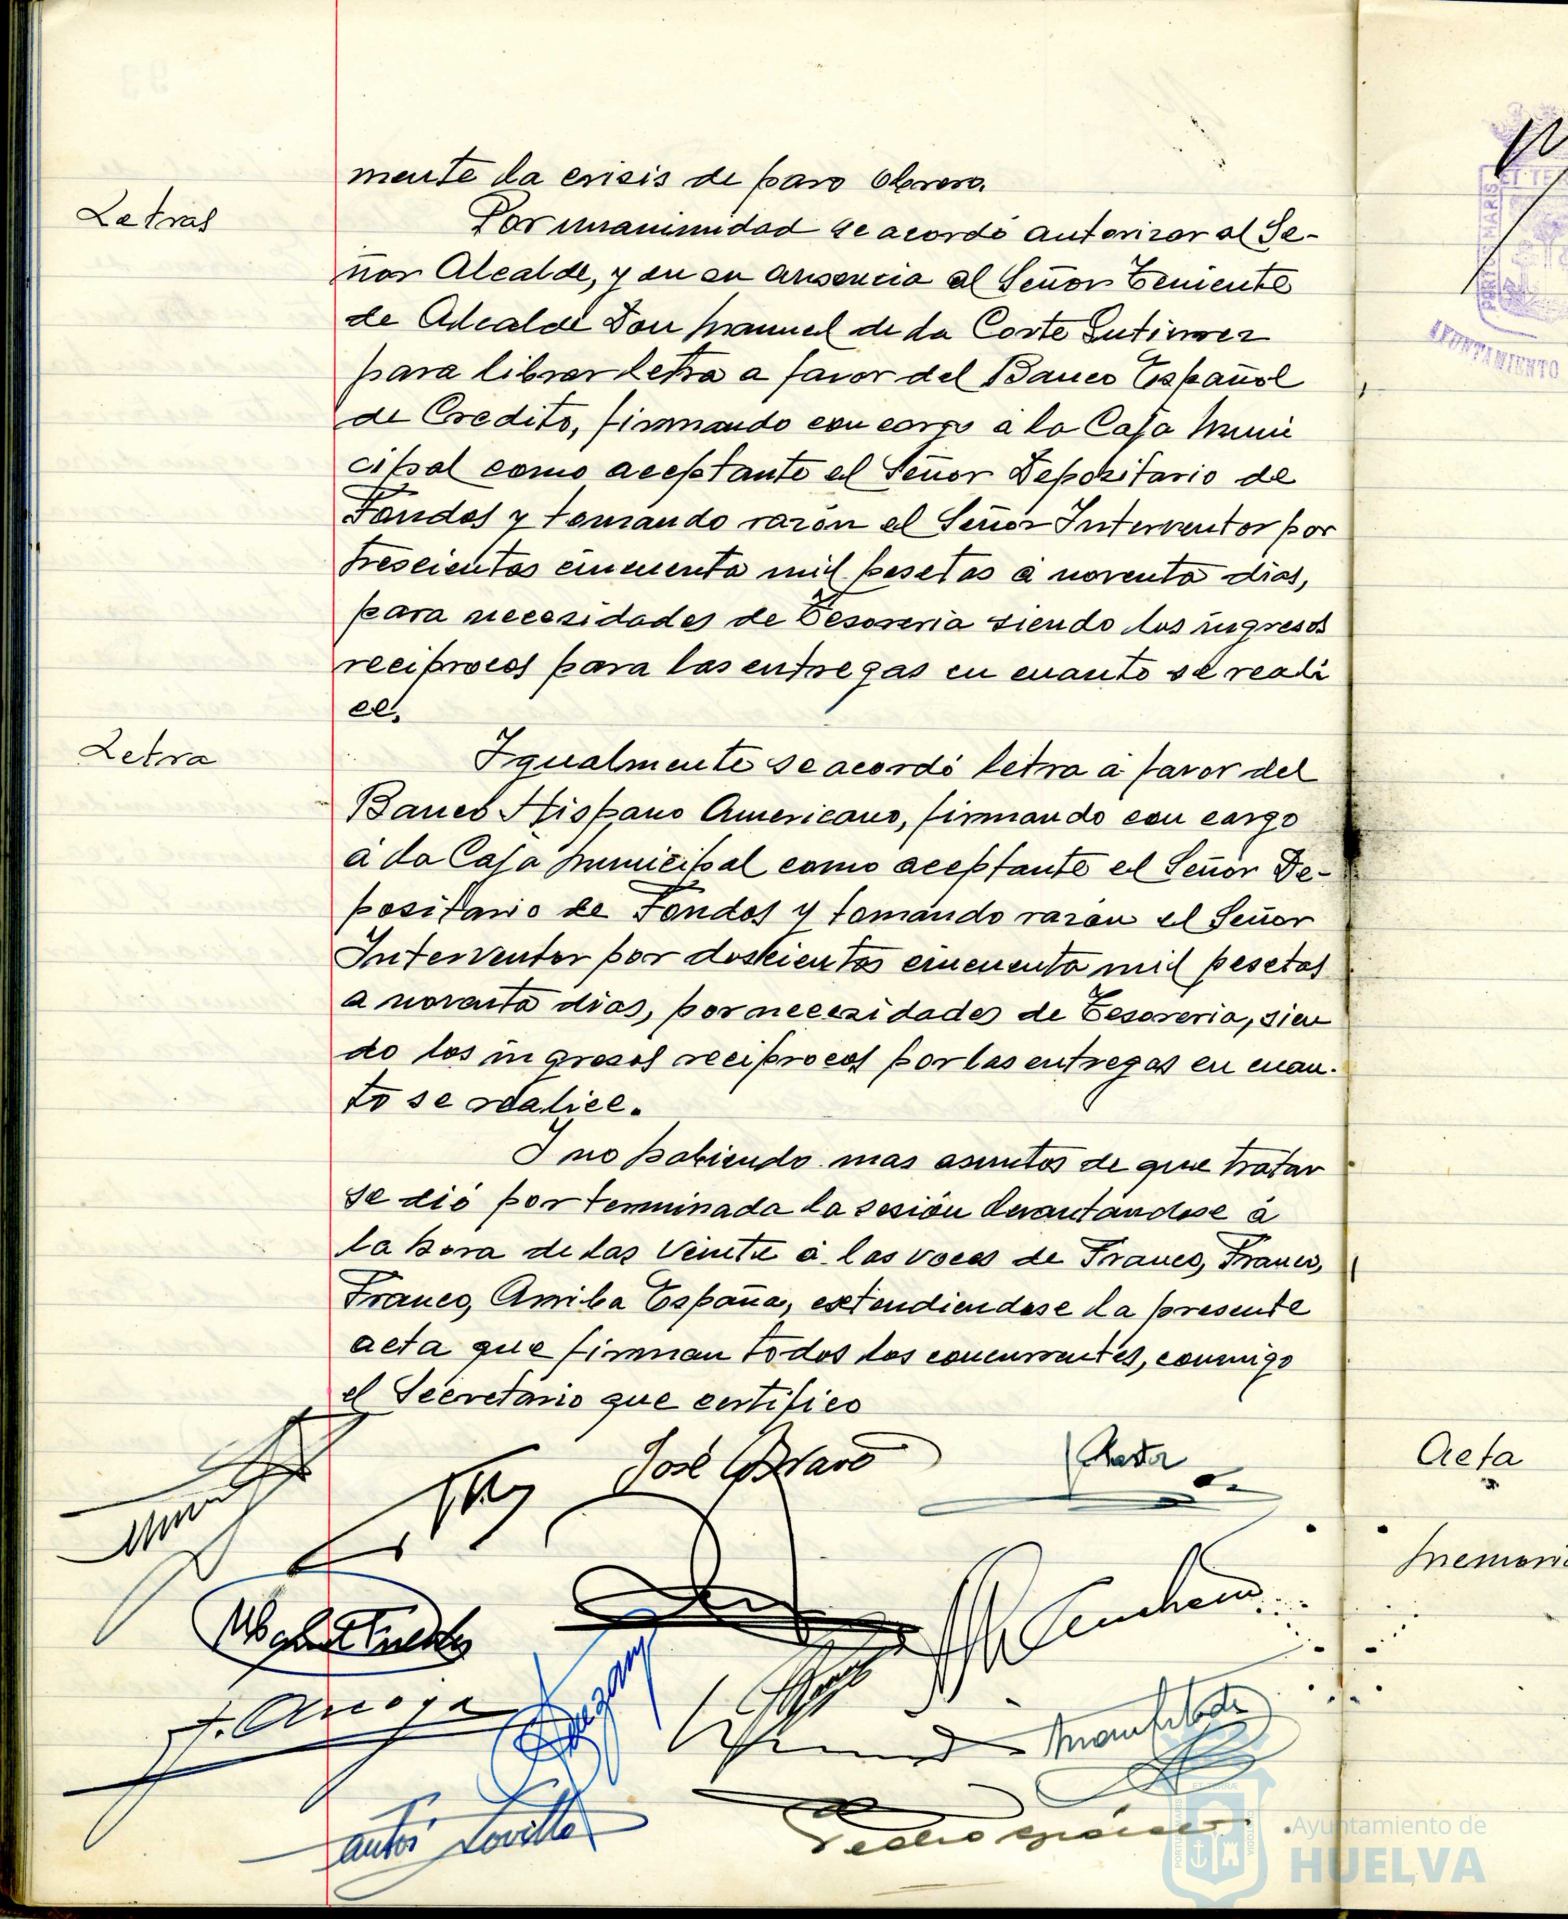 mente la crisis de paro obrero.
Letras
Por unanimidad se acordó autorizar al Se-
ñor Alcalde, y en su ausencia al Señor Teniente
de Alcalde Don Manuel de la Corte Gutierrez
para librar letra a favor del Banco Español
de Credito, firmando con cargo à la Caja Muni
cipal como aceptante el Señor Depositario de
Fondos y tomando razón el Señor Interventor por
trescientas cincuenta mil pesetas à noventa dias,
para necesidades de Tesoreria siendo los ingresos
reciprocos para las entregas en cuanto se reali
ce.
Letra
Igualmente se acordó letra à favor del
Banco Hispano Americano, firmando con cargo
à la Caja Municipal como aceptante el Señor De-
positario de Fondos y tomando razón el Señor
Interventor por doscientas cincuenta mil pesetas
a noventa dias, por necesidades de Tesoreria, sien
do los ingresos reciprocos por las entregas en cuan-
to se realice.
I no habiendo mas asuntos de que tratar
se dió por terminada la sesión levantándose à
la hora de las veinte à las voces de Franco, Franco,
Franco, Arriba España, extendiendose la presente
acta que firman todos los concurrentes, conmigo
el Secretario que certifico
José Bravo
J. Arroyo
Pedro
Acta
Memori
PORTUS MARIS
ET TE
AYUNTAMIENTO
Ayuntamiento de
HUELVA